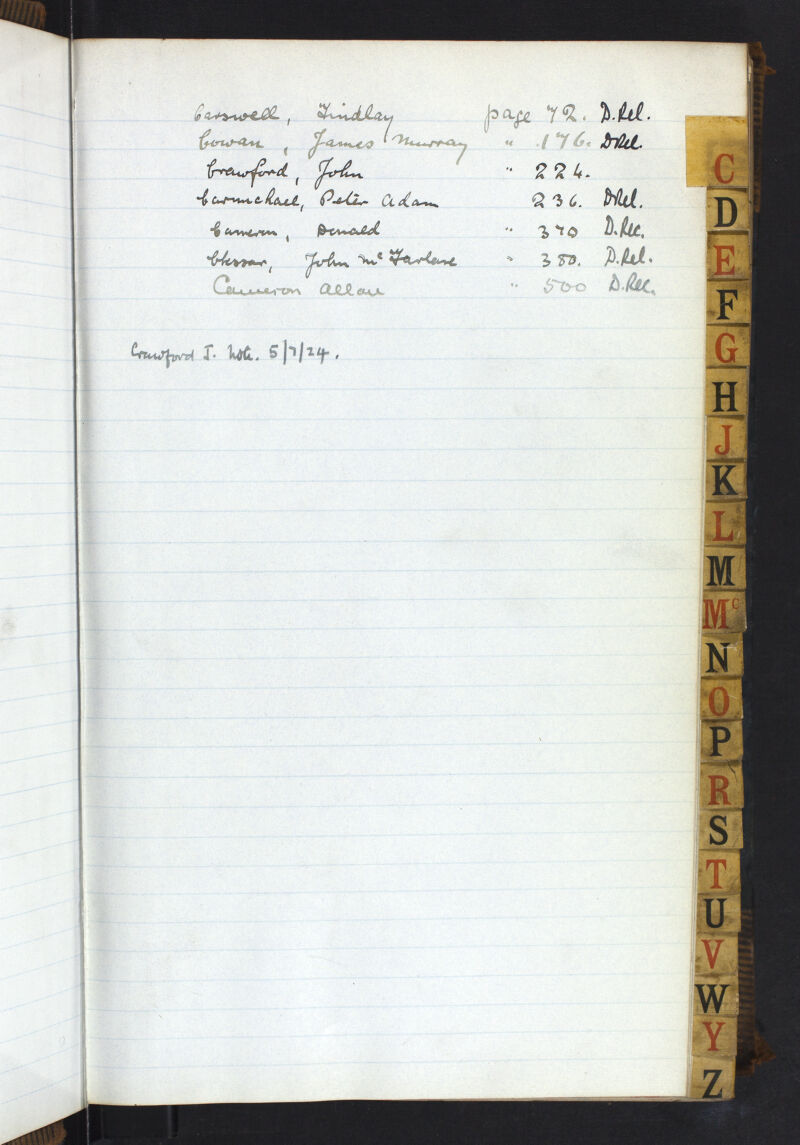 Carswell, Findlay page 72. D.Rel.
Cowan, James Murray " 176. D.Rel.
Crawford, John " 224.
Carmichael, Peter Adam 236. D.Rel.
Cameron, Donald " 370 D.Rec.
John McFarlane " 380. D.Rel.
Cameron Allan " 500 D.Rec.
Crawford J. Note. 5/7/24.
C
D
E
F
G
H
J
K
L
M
Mc
N
O
P
R
S
T
U
V
W
Y
Z